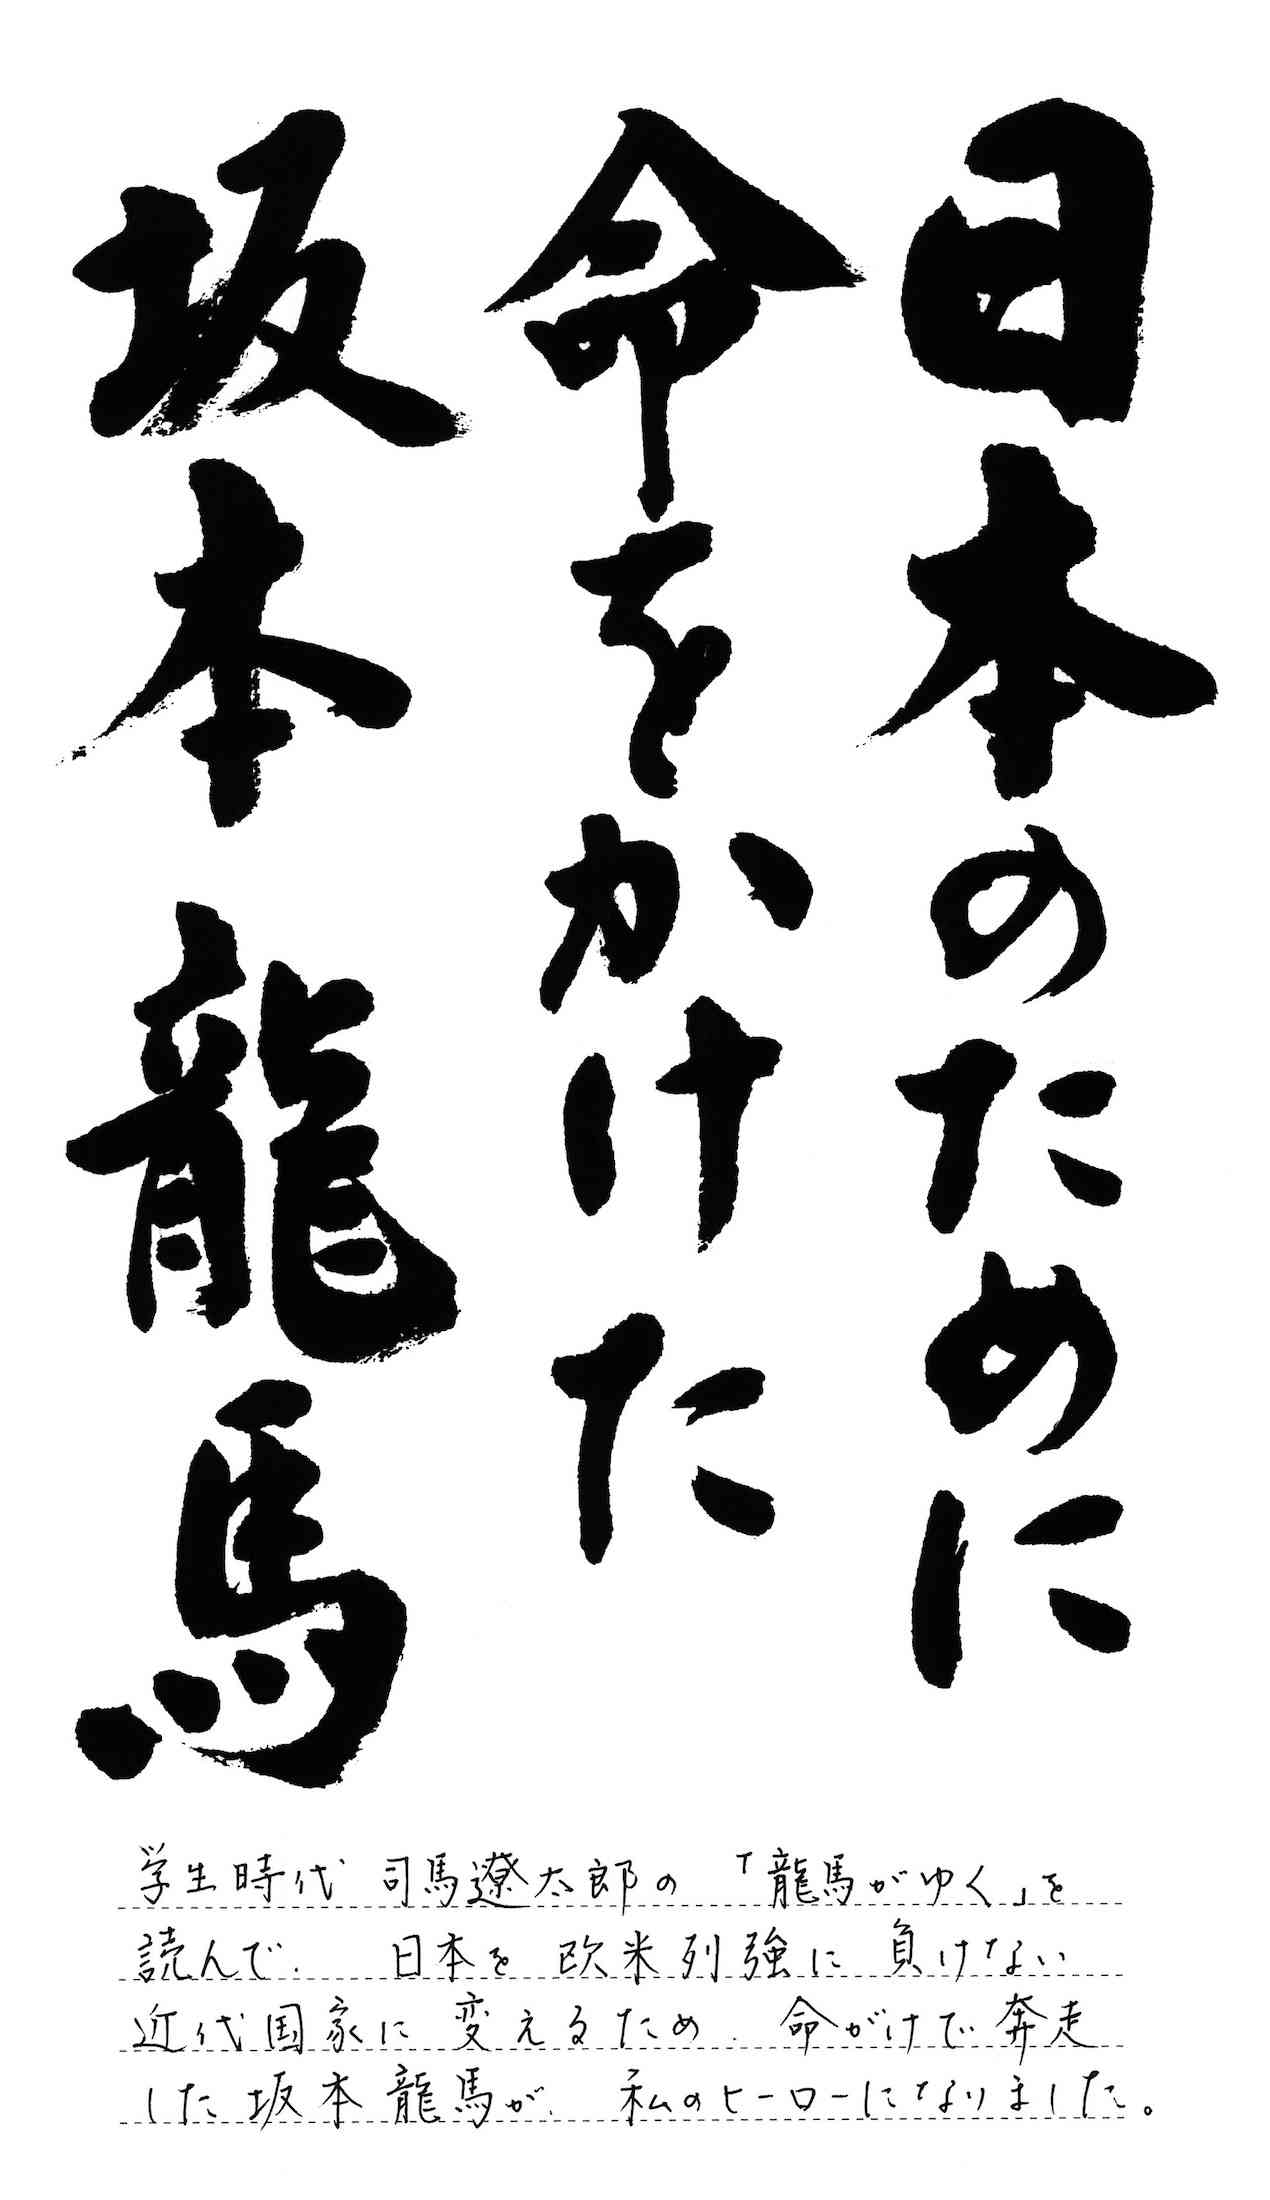 日本のために
命をかけた
坂本龍馬
学生時代 司馬遼太郎の「龍馬がゆく」を
読んで、日本を欧米列強に負けない
近代国家に変えるため、命がけで奔走
した坂本龍馬が、私のヒーローになりました。